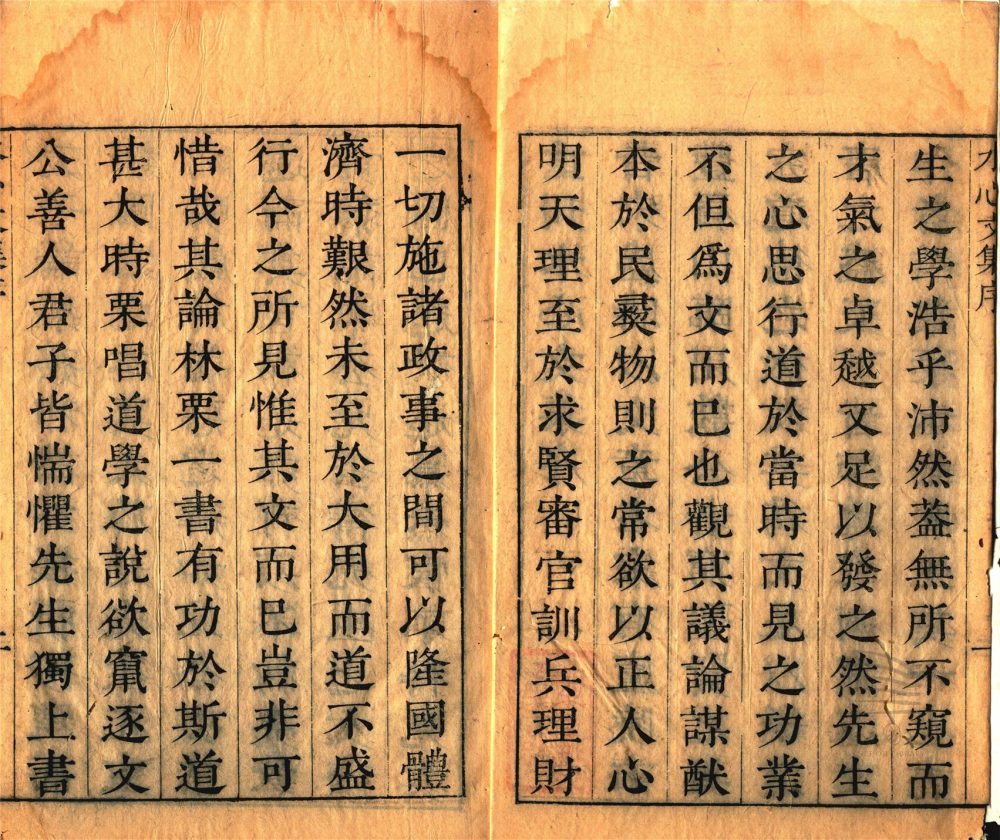 水心文集序
生之學浩乎沛然葢無所不窺而
才氣之卓越又足以發之然先生
之心思行道於當時而見之功業
不但爲文而已也觀其議論謀猷
本於民彝物則之常欲以正人心
明天理至於求賢審官訓兵理財
一切施諸政事之間可以隆國體
濟時艱然未至於大用而道不盛
行今之所見惟其文而已豈非可
惜哉其論林栗一書有功於斯道
甚大時栗唱道學之說欲竄逐文
公善人君子皆惴懼先生獨上書